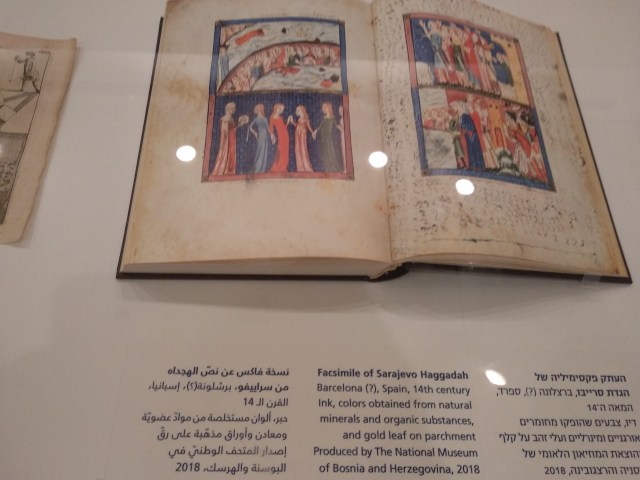 نسخة فاكس عن نصّ الهجداه
من سراييفو، برشلونة(؟)، إسبانيا،
القرن الـ 14
حبر، ألوان مستخلصة من موادّ عضويّة
ومعادن وأوراق مذهّبة على رقّ
إصدار المتحف الوطنيّ في
البوسنة والهرسك، 2018
Facsimile of Sarajevo Haggadah
Barcelona (?), Spain, 14th century
Ink, colors obtained from natural
minerals and organic substances,
and gold leaf on parchment
Produced by The National Museum
of Bosnia and Herzegovina, 2018
העתק פקסימיליה של
הגדת סרייבו, ברצלונה (?), ספרד,
המאה ה־14
דיו, צבעים שהופקו מחומרים
אורגניים ומינרליים ועלי זהב על קלף
הוצאת המוזיאון הלאומי של
והרצגובינה, 2018